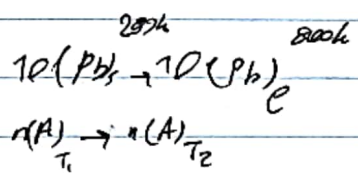 298k 800k
10(Pb)s → 10(Pb)e
n(A)T₁ → n(A)T₂